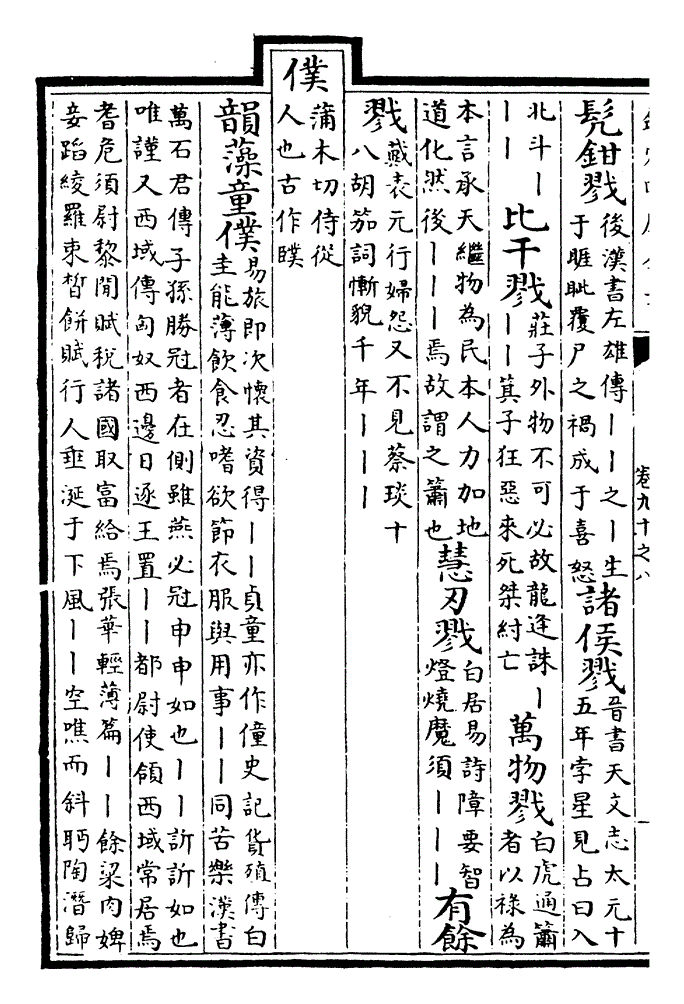 卷九十之八
髠鉗戮後漢書左雄傳丨丨之丨生
于睚眦覆尸之禍成于喜怒
諸侯戮晉書天文志太元十
五年孛星見占曰入
北斗丨
丨丨
比干戮莊子外物不可必故龍逄誅丨
丨丨箕子狂惡來死桀紂亡
萬物戮白虎通簫
者以禄為
本言承天繼物為民本人力加地
道化然後丨丨丨焉故謂之簫也
慧刃戮白居易詩障要智
燈燒魔須丨丨丨
有餘
戮戴表元行婦怨又不見蔡琰十
八胡笳詞慚貌千年丨丨丨
僕
蒲木切侍從
人也古作瞨
韻藻童僕易旅即次懷其資得丨丨貞童亦作僮史記貨殖傳白
圭能薄飲食忍嗜欲節衣服與用事丨丨同苦樂漢書
萬石君傳子孫勝冠者在側雖燕必冠申申如也丨丨訢訢如也
唯謹又西域傳匈奴西邊日逐王置丨丨都尉使領西域常居焉
耆危須尉黎閒賦税諸國取富給焉張華輕薄篇丨丨餘粱肉婢
妾蹈綾羅束晳餅賦行人垂涎于下風丨丨空噍而斜眄陶潛歸